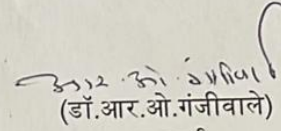 आर. ओ. गंजीवाले
(डॉ.आर.ओ.गंजीवाले)